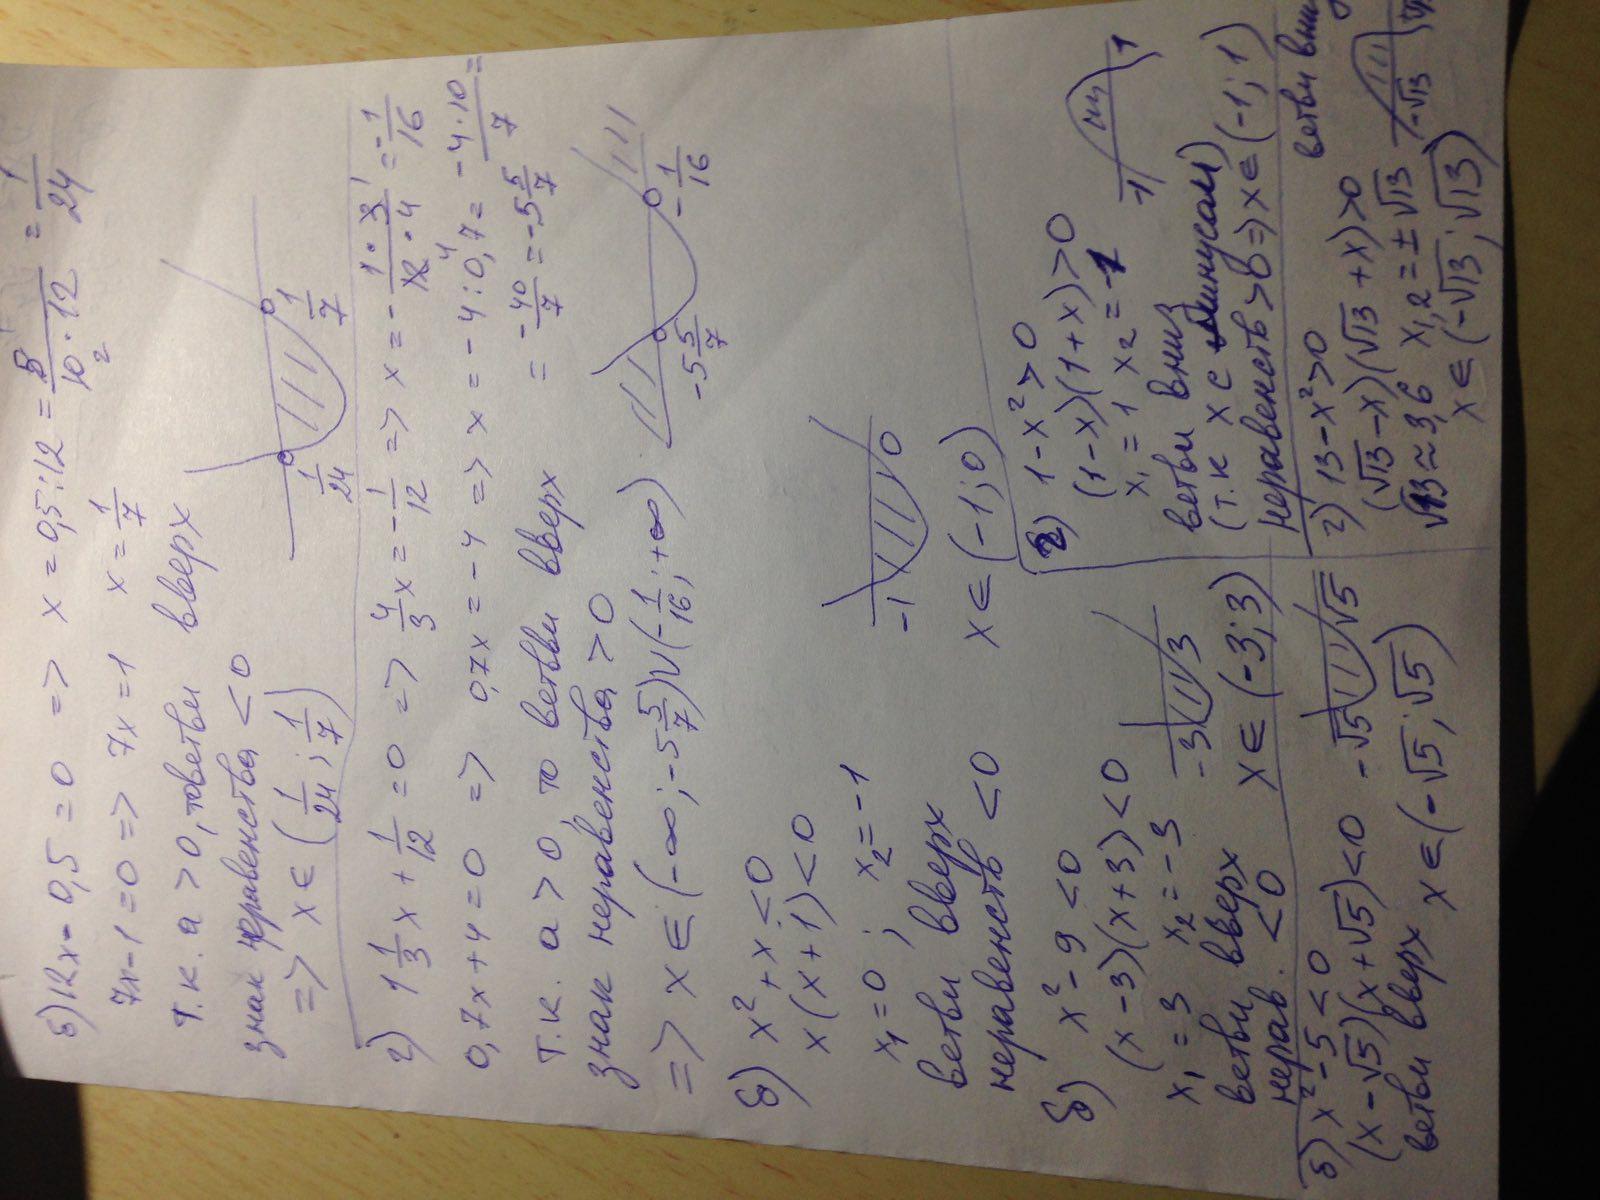 б) 12x - 0,5 = 0 => x = 0,5:12 = 5/(10·12) = 1/24
7x - 1 = 0 => 7x = 1 x = 1/7
Т.к. a > 0, то ветви вверх
знак неравенства < 0
=> x ∈ (1/24; 1/7)
1/24 1/7
г) 1 1/3 x + 1/12 = 0 => 4/3 x = -1/12 => x = -(1·3)/(12·4) = -1/16
0,7x + 4 = 0 => 0,7x = -4 => x = -4:0,7 = -(4·10)/7 =
= -40/7 = -5 5/7
Т.к. a > 0, то ветви вверх
знак неравенства > 0
=> x ∈ (-∞; -5 5/7) U (-1/16; +∞)
-5 5/7 -1/16
б) x² + x < 0
x(x+1) < 0
x₁ = 0; x₂ = -1
ветви вверх
неравенств < 0
-1 0
x ∈ (-1; 0)
б) x² - 9 < 0
(x-3)(x+3) < 0
x₁ = 3 x₂ = -3
ветви вверх
нерав. < 0
-3 3
x ∈ (-3; 3)
г) 1 - x² > 0
(1-x)(1+x) > 0
x₁ = 1 x₂ = -1
ветви вниз
(т.к x с минусом)
неравенств > 0 => x ∈ (-1; 1)
-1 1
б) x² - 5 < 0
(x-√5)(x+√5) < 0
ветви вверх
-√5 √5
x ∈ (-√5; √5)
г) 13 - x² > 0
(√13 - x)(√13 + x) > 0
√13 ≈ 3,6 x₁,₂ = ± √13
x ∈ (-√13; √13)
ветви вниз
-√13